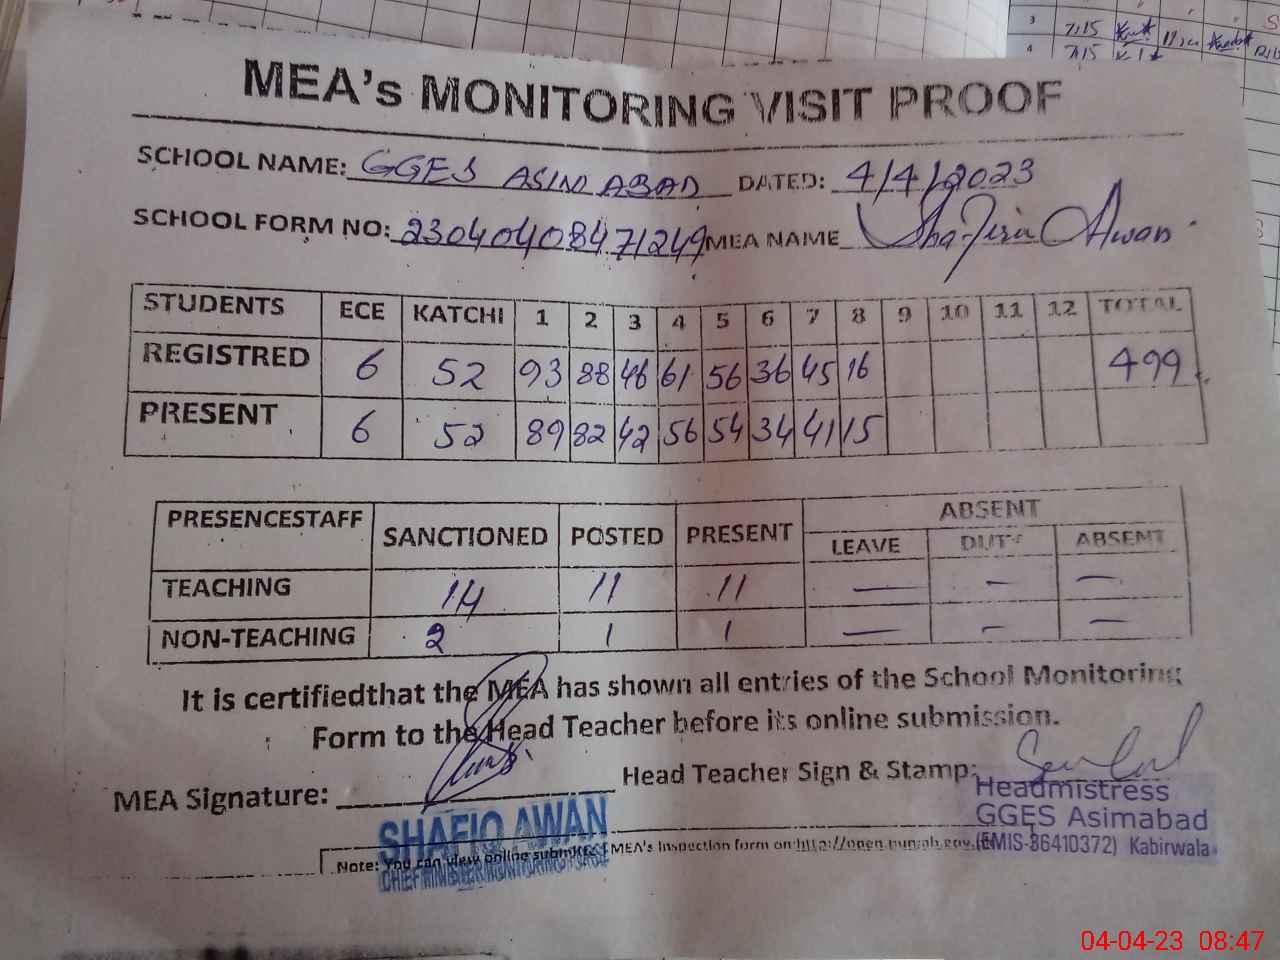 3 7:15
4 7:15
MEA's MONITORING VISIT PROOF
SCHOOL NAME: GGES ASIM ABAD DATED: 4/4/2023
SCHOOL FORM NO: 23040408471249 MEA NAME Shafiq Awan
STUDENTS ECE KATCHI 1 2 3 4 5 6 7 8 9 10 11 12 TOTAL
REGISTRED 6 52 93 88 46 61 56 36 45 16 499
PRESENT 6 52 89 82 42 56 54 34 41 15
PRESENCESTAFF SANCTIONED POSTED PRESENT ABSENT
LEAVE DUTY ABSENT
TEACHING 14 11 11 — — —
NON-TEACHING 2 1 1 — — —
It is certifiedthat the MEA has shown all entries of the School Monitoring
Form to the Head Teacher before its online submission.
MEA Signature: Head Teacher Sign & Stamp:
SHAFIQ AWAN
Headmistress
GGES Asimabad
(EMIS-36410372) Kabirwala
Note: You can view online submitted MEA's Inspection form on:http://open.punjab.gov.
04-04-23 08:47